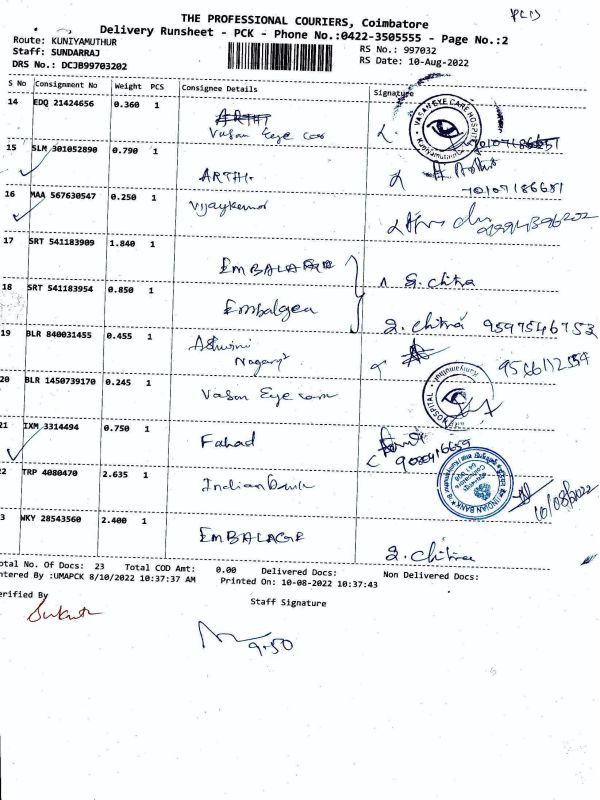 THE PROFESSIONAL COURIERS, Coimbatore
Delivery Runsheet - PCK - Phone No.:0422-3505555 - Page No.:2
Route: KUNIYAMUTHUR
Staff: SUNDARRAJ
DRS No.: DCJB99703202
RS No.: 997032
RS Date: 10-Aug-2022
S No Consignment No Weight PCS Consignee Details Signature
14 EDQ 21424656 0.360 1
Vasan Eye care
VASAN EYE CARE HOSPITAL
15 SLM 301052890 0.790 1
ARTHI.
70107186681
16 MAA 567630547 0.250 1
Vijaykumar
17 SRT 541183909 1.840 1
S. Chitra
18 SRT 541183954 0.850 1
Embalgea
S. Chitra 9597546753
19 BLR 840031455 0.455 1
Ashwini
Nagaraj
20 BLR 1450739170 0.245 1
Vasan Eye care
HOSPITAL
21 IXM 3314494 0.750 1
Fahad
9080416659
22 TRP 4080470 2.635 1
Indian Bank
INDIAN BANK
10/08/2022
3 WKY 28543560 2.400 1
EMBALAGE
S. Chitra
otal No. Of Docs: 23 Total COD Amt: 0.00 Delivered Docs: Non Delivered Docs:
ntered By :UMAPCK 8/10/2022 10:37:37 AM Printed On: 10-08-2022 10:37:43
erified By
Staff Signature
9.50